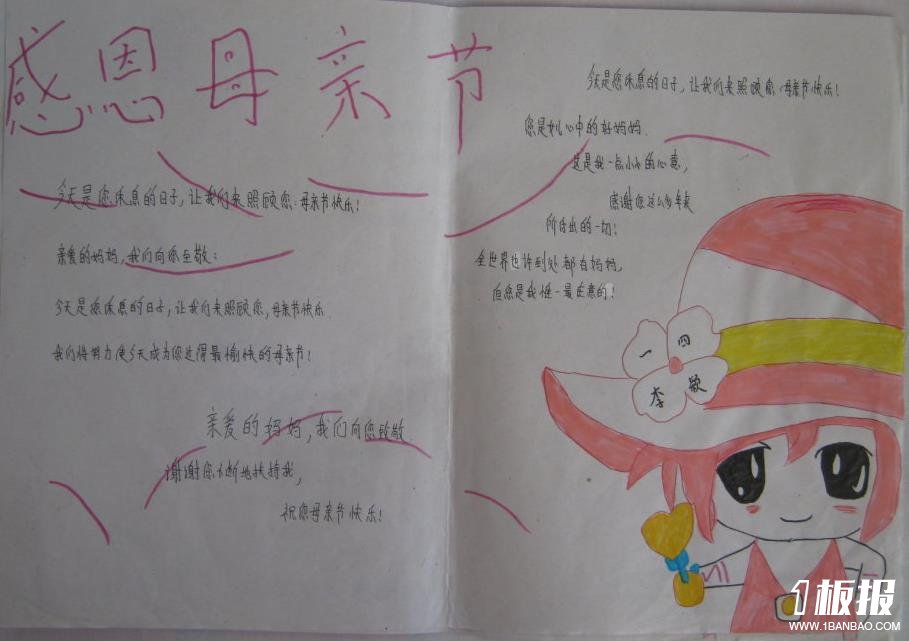 感恩母亲节
今天是您休息的日子，让我们来照顾您：母亲节快乐！
亲爱的妈妈，我们向您至敬：
今天是您休息的日子，让我们来照顾您，母亲节快乐
我们将努力使今天成为你过得最愉快的母亲节！
亲爱的妈妈，我们向您致敬
谢谢您不断地扶持我，
祝您母亲节快乐！
今天是您休息的日子，让我们来照顾您，母亲节快乐！
您是我心中的好妈妈.
这是我一点小小的心意，
感谢您这么多年来
所付出的一切！
全世界也许到处都有妈妈，
但您是我唯一最在意的！
一四
李颖
1板报
WWW.1BANBAO.COM